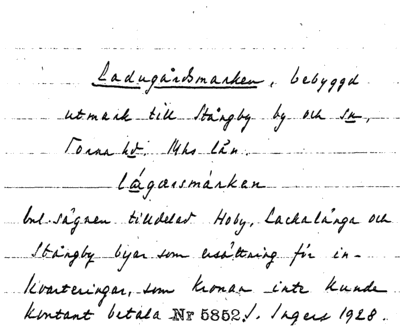 Ladugårdsmarken, bebyggd
utmark till Stångby by och sn,
Torna hd. Mhs län.
lágarsmárken
enl. sägnen tilldelad Hoby, Lackalänga och
Stångby byar som ersättning för in-
kvarteringar, som kronan inte kunde
kontant betala Nr 5852. I. Ingers 1928.